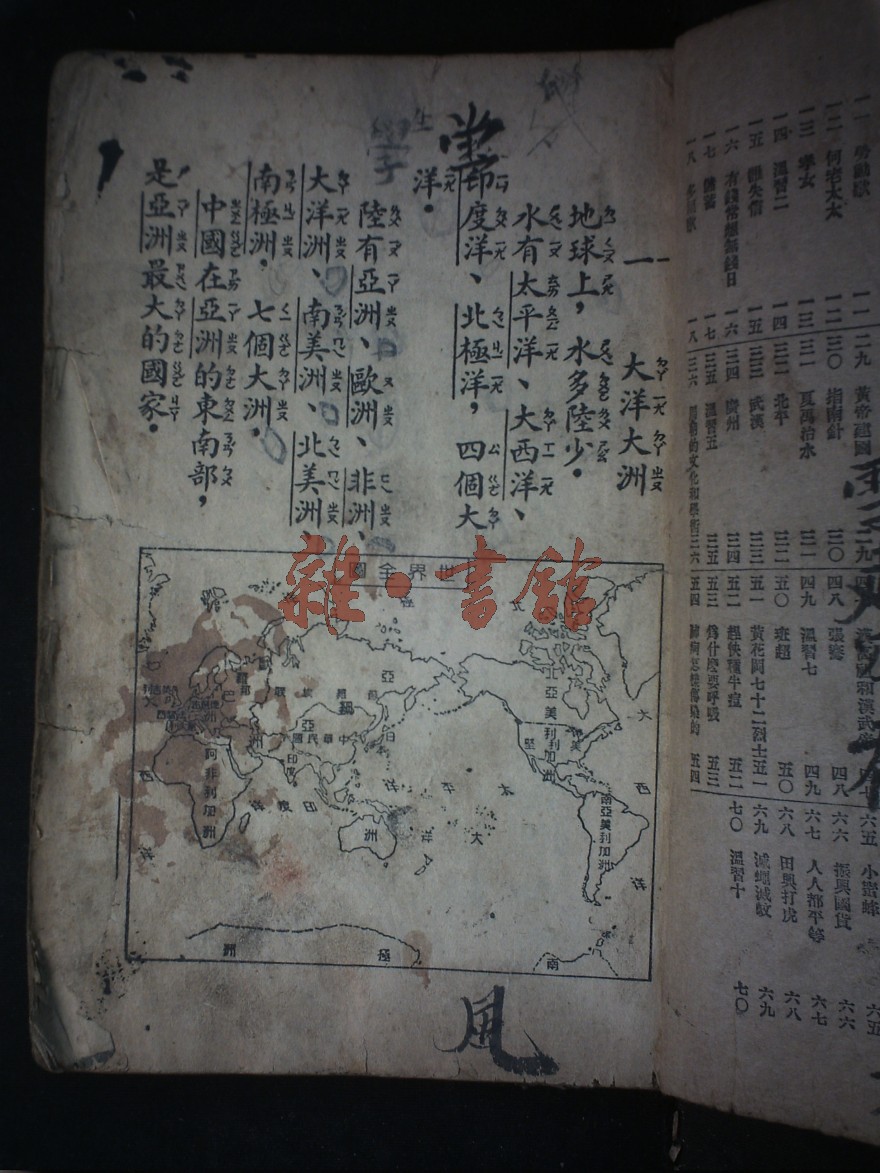 一一
大洋大洲
地球上，水多陸少。
水有太平洋、大西洋、
印度洋、北極洋，四個大
洋。
陸有亞洲、歐洲、非洲、
大洋洲、南美洲、北美洲
南極洲。七個大洲。
中國在亞洲的東南部，
是亞洲最大的國家。
世界全圖
亞
中華民國
印度
印度洋
阿非利加洲
太平洋
大西洋
南亞美利加洲
南極洲
風
雜·書館
一二 何老太太 一二
一三 孝女 一三
一四 溫習二 一四
一五
一六 有錢常想無錢日 一六
一七
一八
二九 黃帝建國 二九
三〇 指南針 三〇
三一 夏禹治水 三一
三二 北平 三二
三三 武漢 三三
三四 廣州 三四
三五 溫習五 三五
三六 三六
四八 張騫 四八
四九 溫習七 四九
五〇 班超 五〇
五一 黃花岡七十二烈士 五一
五二 趕快種牛痘 五二
五三 為什麼要呼吸 五三
五四 五四
六五 小蜜蜂 六五
六六 振興國貨 六六
六七 人人都平等 六七
六八 田興打虎 六八
六九 滅蠅滅蚊 六九
七〇 溫習十 七〇